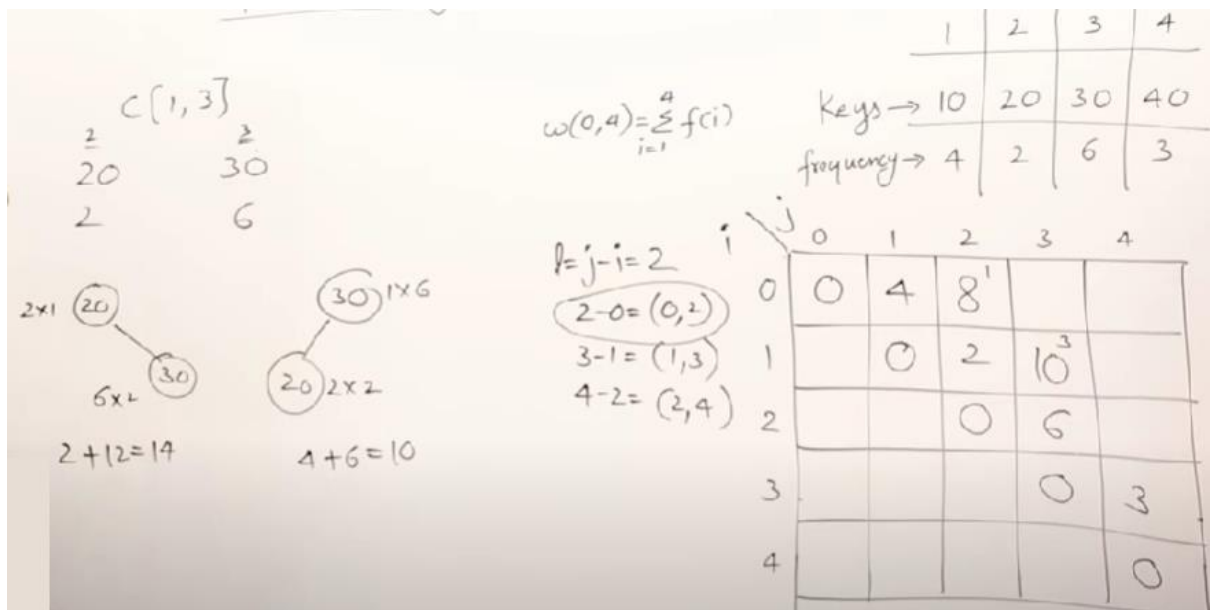 C[1,3]
2 3
20 30
2 6
2x1 20 30 1x6
30 20 2x2
6x2
2+12=14 4+6=10
w(0,4)=4Σi=1 f(i)
l=j-i=2
2-0=(0,2)
3-1=(1,3)
4-2=(2,4)
1 2 3 4
Keys→ 10 20 30 40
frequency→ 4 2 6 3
i j 0 1 2 3 4
0 0 4 8¹
1 0 2 10³
2 0 6
3 0 3
4 0